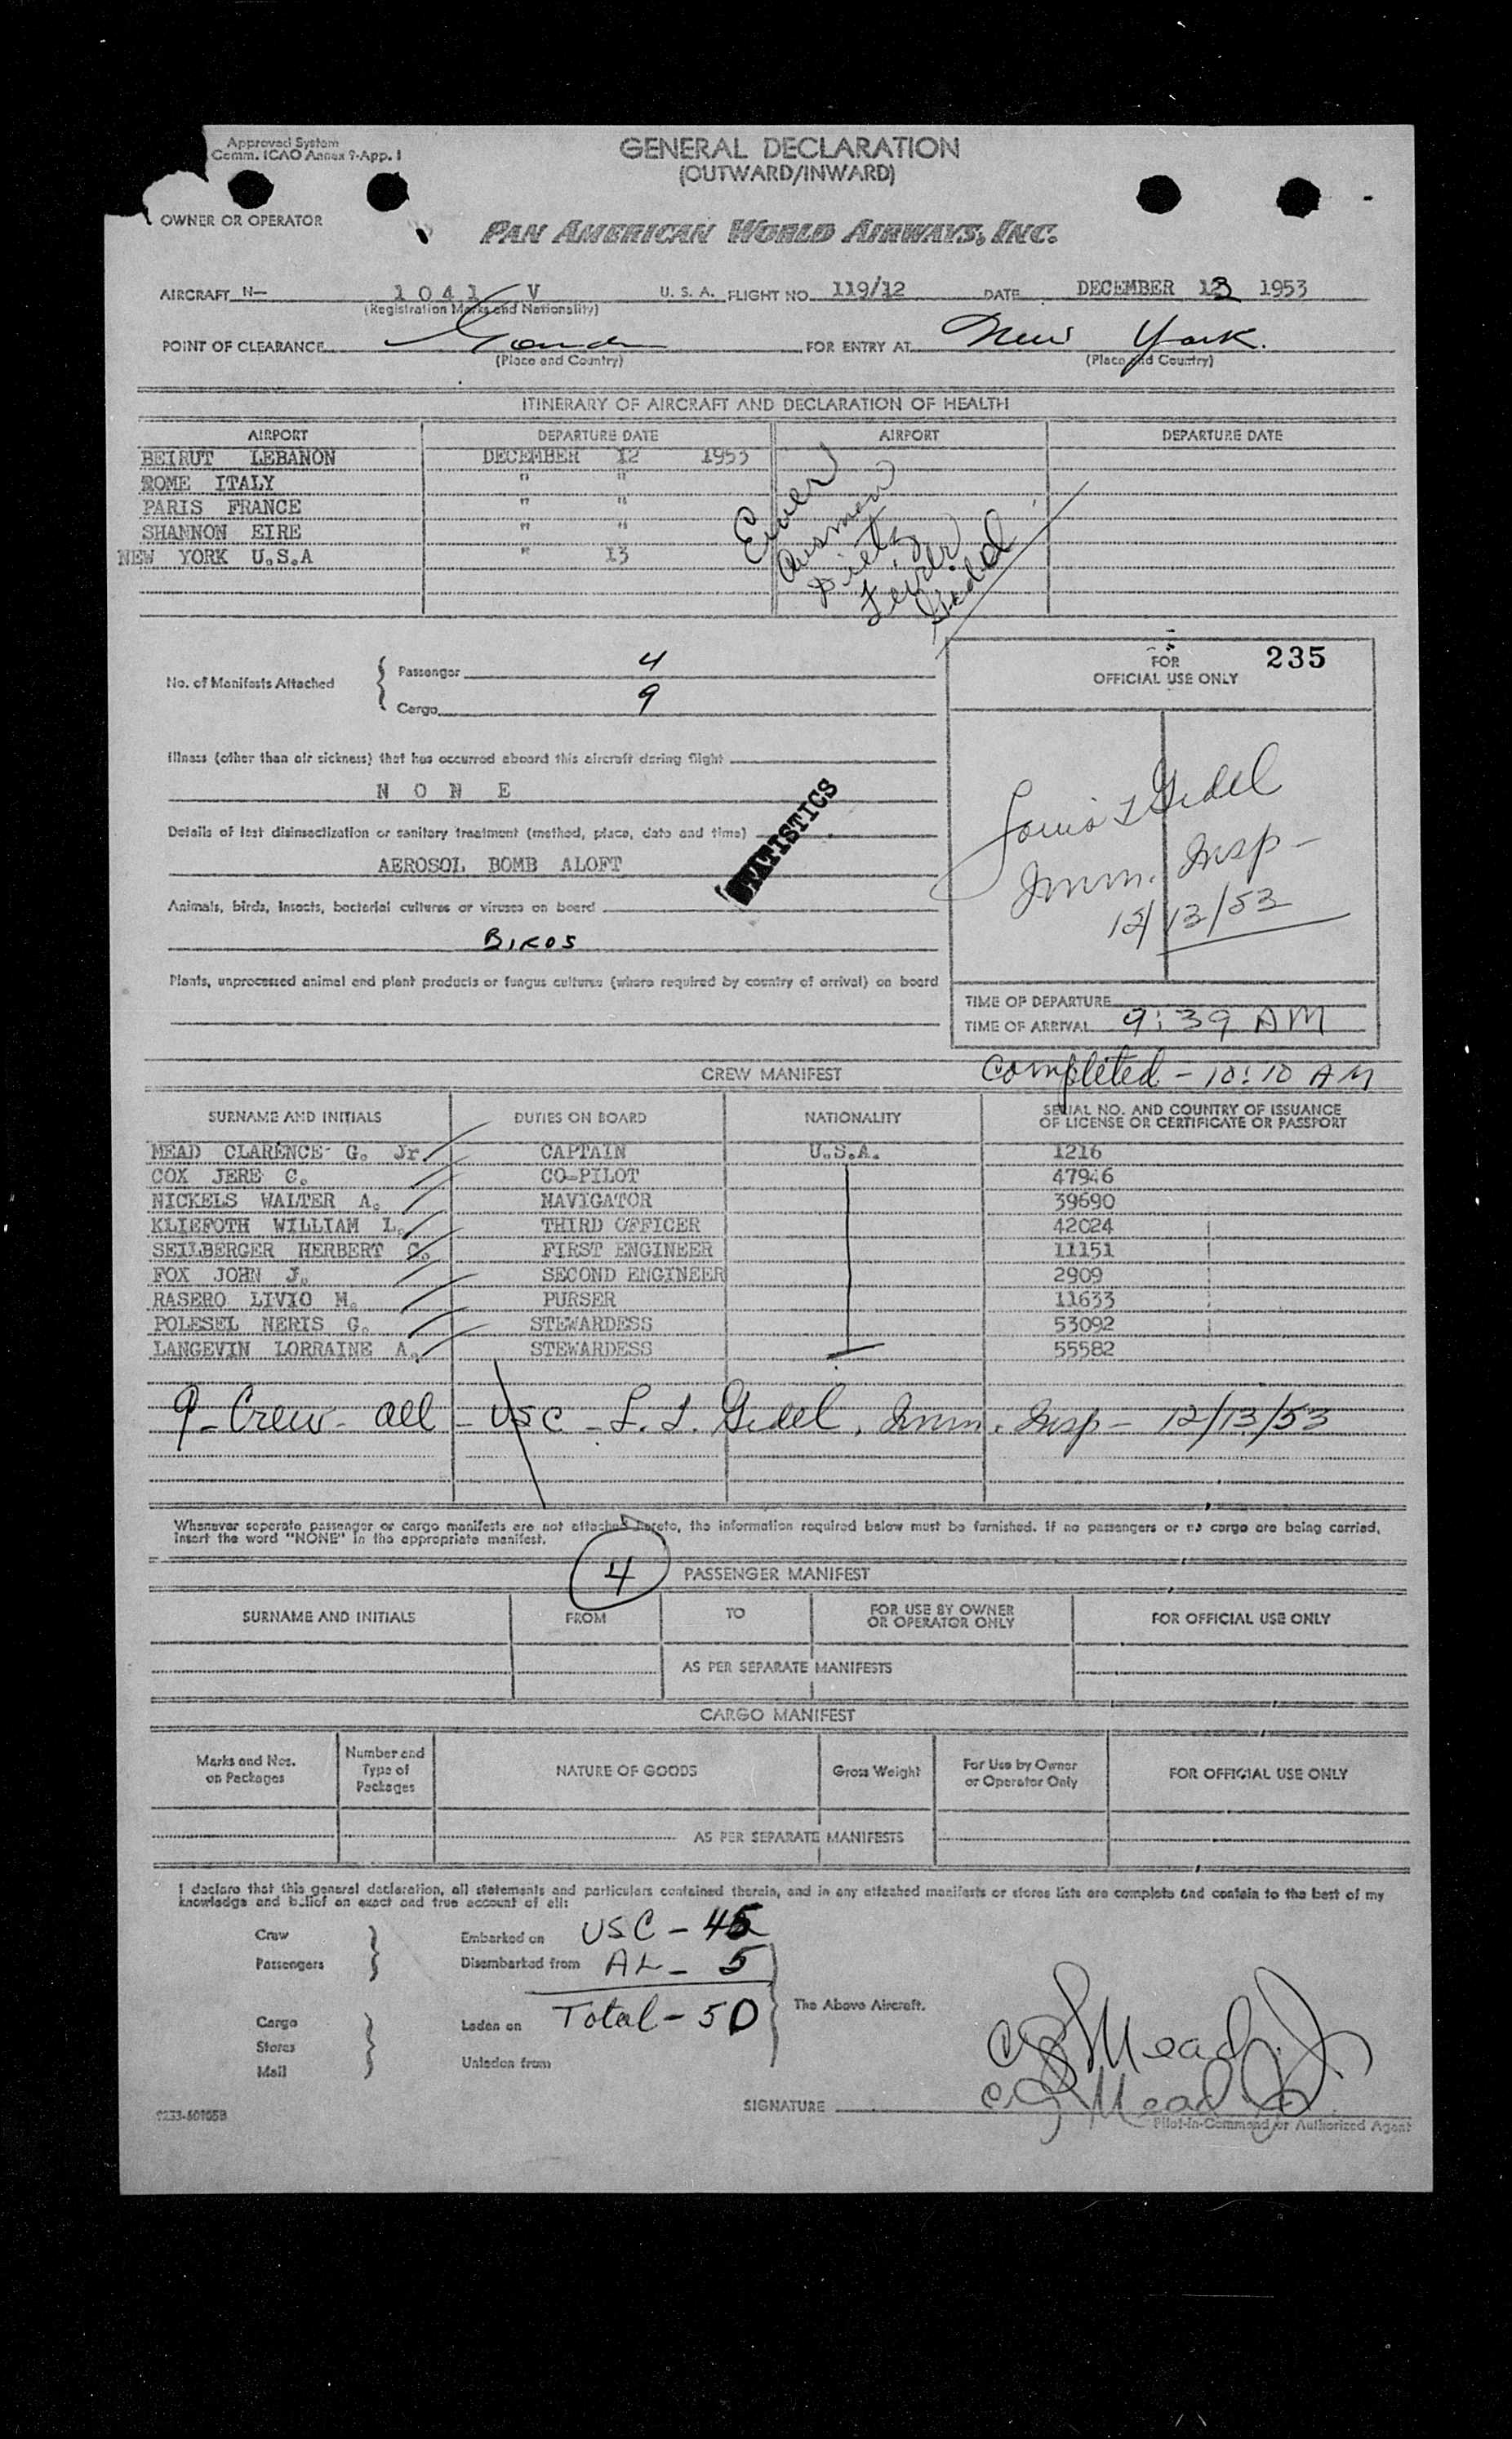 Approved System
Comm. ICAO Annex 9-App. 1
GENERAL DECLARATION
(OUTWARD/INWARD)
OWNER OR OPERATOR
PAN AMERICAN WORLD AIRWAYS, INC.
AIRCRAFT N- 1041 V U. S. A. FLIGHT NO. 119/12 DATE DECEMBER 13 1953
(Registration Marks and Nationality)
POINT OF CLEARANCE Gander FOR ENTRY AT New York.
(Place and Country) (Place and Country)
ITINERARY OF AIRCRAFT AND DECLARATION OF HEALTH
AIRPORT DEPARTURE DATE AIRPORT DEPARTURE DATE
BEIRUT LEBANON DECEMBER 12 1953
ROME ITALY " "
PARIS FRANCE " "
SHANNON EIRE " "
NEW YORK U.S.A " 13
Ausman
Dietz
Gidel
No. of Manifests Attached
Passenger 4
Cargo 9
FOR
OFFICIAL USE ONLY
235
Illness (other than air sickness) that has occurred aboard this aircraft during flight
N O N E
Details of last disinsectization or sanitary treatment (method, place, date and time)
STATISTICS
AEROSOL BOMB ALOFT
Animals, birds, insects, bacterial cultures or viruses on board
BIRDS
Plants, unprocessed animal and plant products or fungus cultures (where required by country of arrival) on board
Louis L Gidel
Imm. Insp-
12/13/53
TIME OF DEPARTURE
TIME OF ARRIVAL 9:39 AM
Completed - 10:10 AM
CREW MANIFEST
SURNAME AND INITIALS DUTIES ON BOARD NATIONALITY SERIAL NO. AND COUNTRY OF ISSUANCE
OF LICENSE OR CERTIFICATE OR PASSPORT
MEAD CLARENCE G. Jr. CAPTAIN U.S.A. 1216
COX JERE C. CO-PILOT 47946
NICKELS WALTER A. NAVIGATOR 39690
KLIEFOTH WILLIAM L. THIRD OFFICER 42024
SEILBERGER HERBERT C. FIRST ENGINEER 11151
FOX JOHN J. SECOND ENGINEER 2909
RASERO LIVIO M. PURSER 11633
POLESEL NERIS G. STEWARDESS 53092
LANGEVIN LORRAINE A. STEWARDESS 55582
9- Crew - all - USC - L. L. Gidel, Imm. Insp - 12/13/53
Whenever separate passenger or cargo manifests are not attached hereto, the information required below must be furnished. If no passengers or no cargo are being carried,
insert the word "NONE" in the appropriate manifest.
4
PASSENGER MANIFEST
SURNAME AND INITIALS FROM TO FOR USE BY OWNER
OR OPERATOR ONLY FOR OFFICIAL USE ONLY
AS PER SEPARATE MANIFESTS
CARGO MANIFEST
Marks and Nos.
on Packages
Number and
Type of
Packages
NATURE OF GOODS
Gross Weight
For Use by Owner
or Operator Only
FOR OFFICIAL USE ONLY
AS PER SEPARATE MANIFESTS
I declare that this general declaration, all statements and particulars contained therein, and in any attached manifests or stores lists are complete and contain to the best of my
knowledge and belief an exact and true account of all:
Crew
Passengers
Embarked on USC - 45
Disembarked from AL - 5
Total - 50
The Above Aircraft.
Cargo
Stores
Mail
Laden on
Unladen from
CG Mead Jr
SIGNATURE CG Mead Jr.
Pilot-in-Command or Authorized Agent